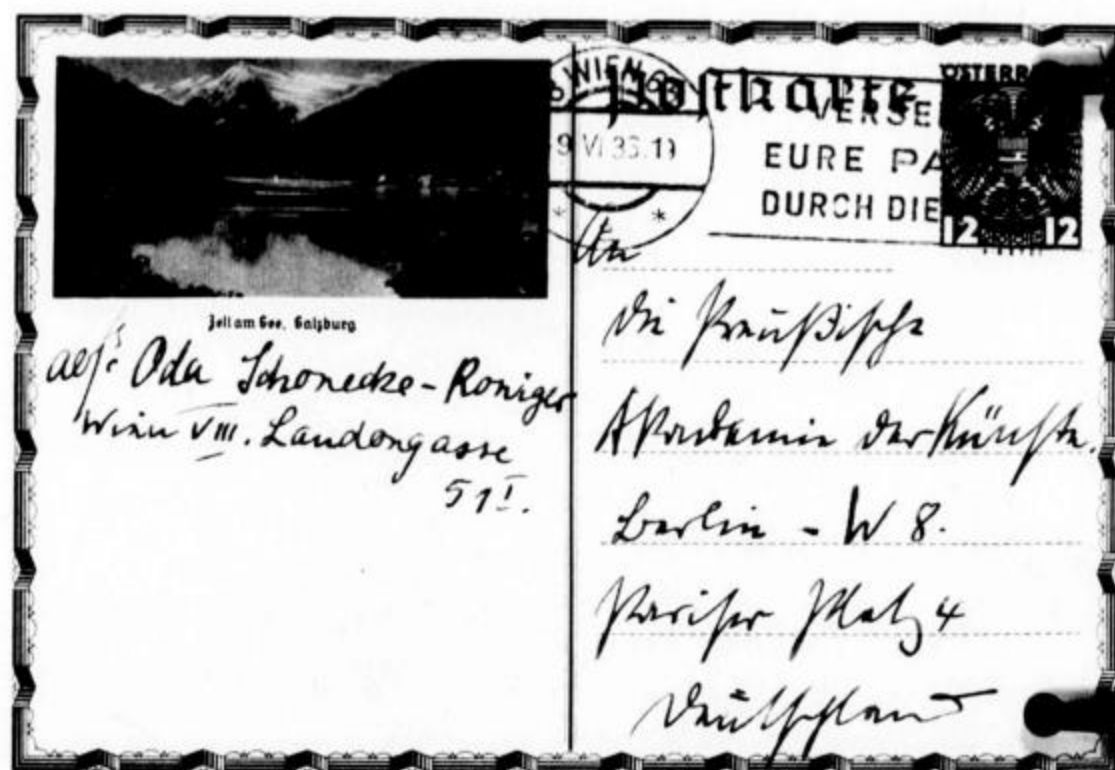 Zell am See, Salzburg
abs: Oda Schonecke-Roniger
Wien VIII. Laudongasse
51 I.
Postkarte
WIEN
9 VI 36.19
VERSE
EURE PA
DURCH DIE
ÖSTERR
12 12
An
die Preußische
Akademie der Künste.
Berlin - W 8.
Pariser Platz 4
Deutschland